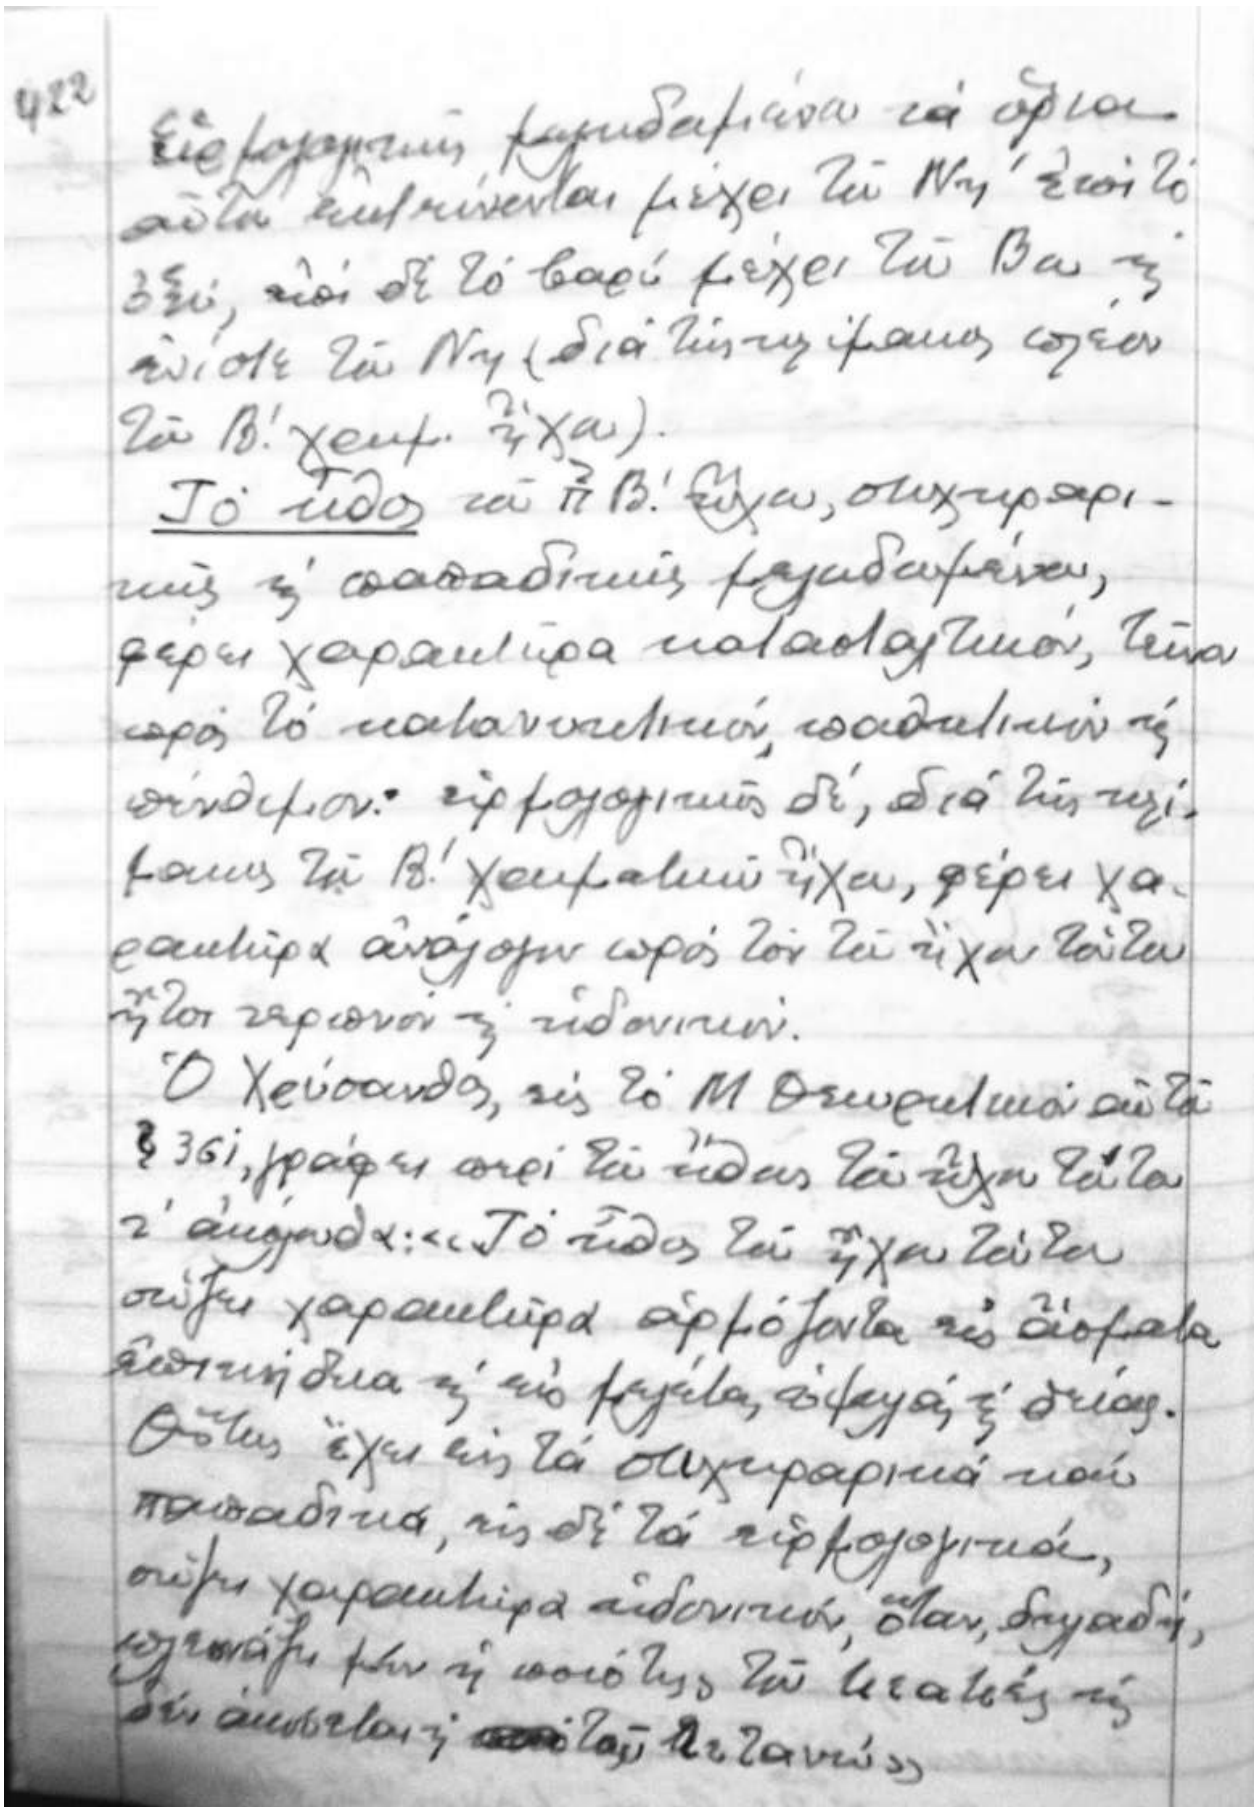 422
εἱρμολογικῆς μελωδουμένου τά ὅρια
αὐτά ἐκτείνονται μέχρι τοῦ Νη΄ ἐπί τό
ὀξύ, ἐπί δέ τό βαρύ μέχρι τοῦ Βου ἤ
ἐνίοτε τοῦ Νη (διά τῆς κλίμακος πλέον
τοῦ Β! χρωμ. ἤχου).
Τό ἦθος τοῦ π Β! ἤχου, στιχηραρι-
κῆς ἤ παπαδικῆς μελωδουμένου,
φέρει χαρακτῆρα κατασταλτικόν,
πρός τό κατανυκτικόν, παθητικόν ἤ
πένθιμον· εἱρμολογικῆς δέ, διά τῆς κλί-
μακος τοῦ Β! χρωματικοῦ ἤχου, φέρει χα-
ρακτῆρα ἀνάλογον πρός τόν τοῦ ἤχου τούτου
ἤτοι τερπνόν ἤ ἡδονικόν.
Ὁ Χρύσανθος, εἰς τό Μ Θεωρητικόν αὐτοῦ
§ 361, γράφει περί τοῦ ἤθους τοῦ ἤχου τούτου
τ' ἀκόλουθα: «Τό ἦθος τοῦ ἤχου τούτου
σώζει χαρακτῆρα ἁρμόζοντα εἰς ἄσματα
ἐπικήδεια ἤ εἰς μεγάλας, ὑψηλάς, ἤ θείας.
Οὕτως ἔχει εἰς τά στιχηραρικά καί
παπαδικά, εἰς δέ τά εἱρμολογικά,
σώζει χαρακτῆρα ἡδονικόν, ὅταν, δηλαδή,
πλεονάζει μέν ἡ ποιότης τοῦ ἤ
δέν ἀκούεται ἡ τοῦ »